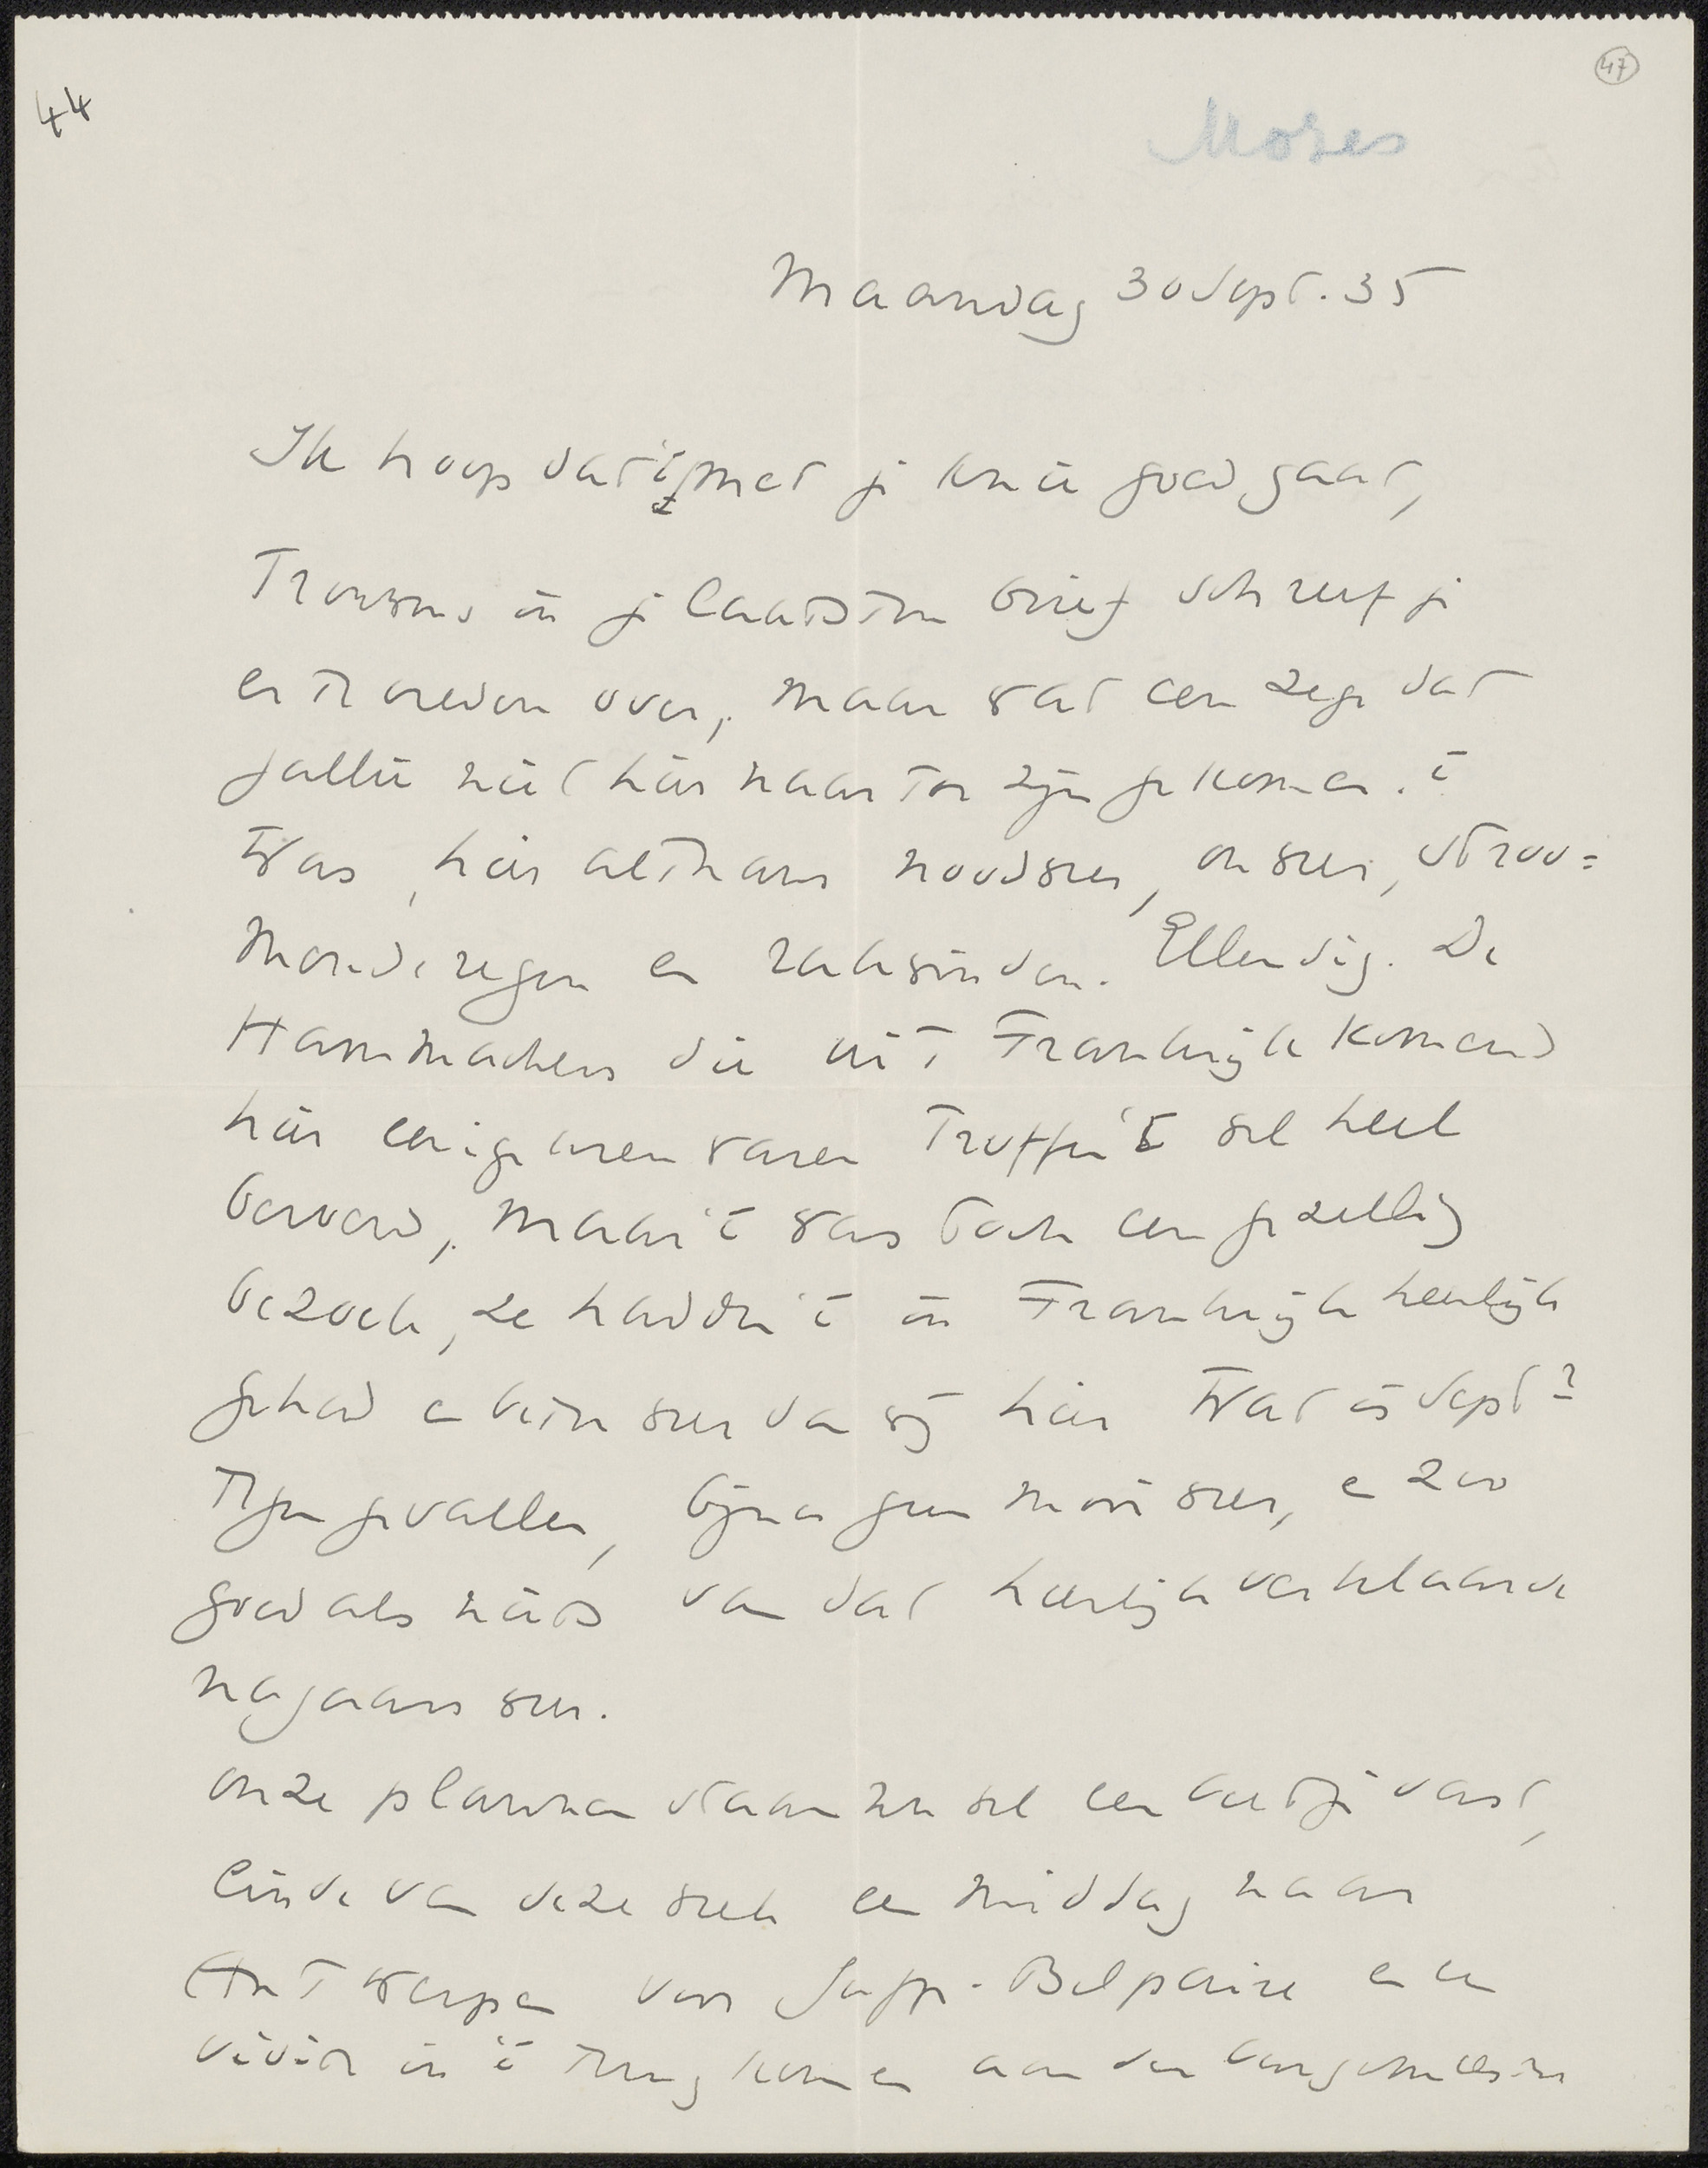 44
47
Moses
Maandag 30 Sept. 35
Ik hoop dat 't met je knie goed gaat,
Trouwens in je laatsten brief schreef je
er tevreden over, maar wat een zege dat
jullie niet hier naar toe zijn gekomen. 't
Was, hier althans noodweer, onweer, stroo=
mende regen en rukwinden. Ellendig. De
Hammachers die uit Frankrijk komend
hier enige uren waren troffen 't wel heel
beroerd, maar 't was toch een gezellig
bezoek, ze hadden 't in Frankrijk heerlijk
gehad en beter weer dan wij hier Wat is Sept?
tegengevallen, bijna geen mooi weer, en zoo
goed als niets van dat heerlijk verklaarde
najaars weer.
Onze plannen staan nu wel een beetje vast,
Einde van deze week een middag naar
Antwerpen voor Juffr. Belpaire en een
visite in 't terugkomen aan den burgemeester